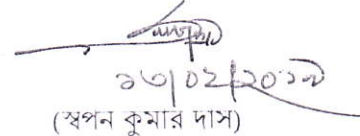 ১৩/০২/২০১৯
(স্বপন কুমার দাস)